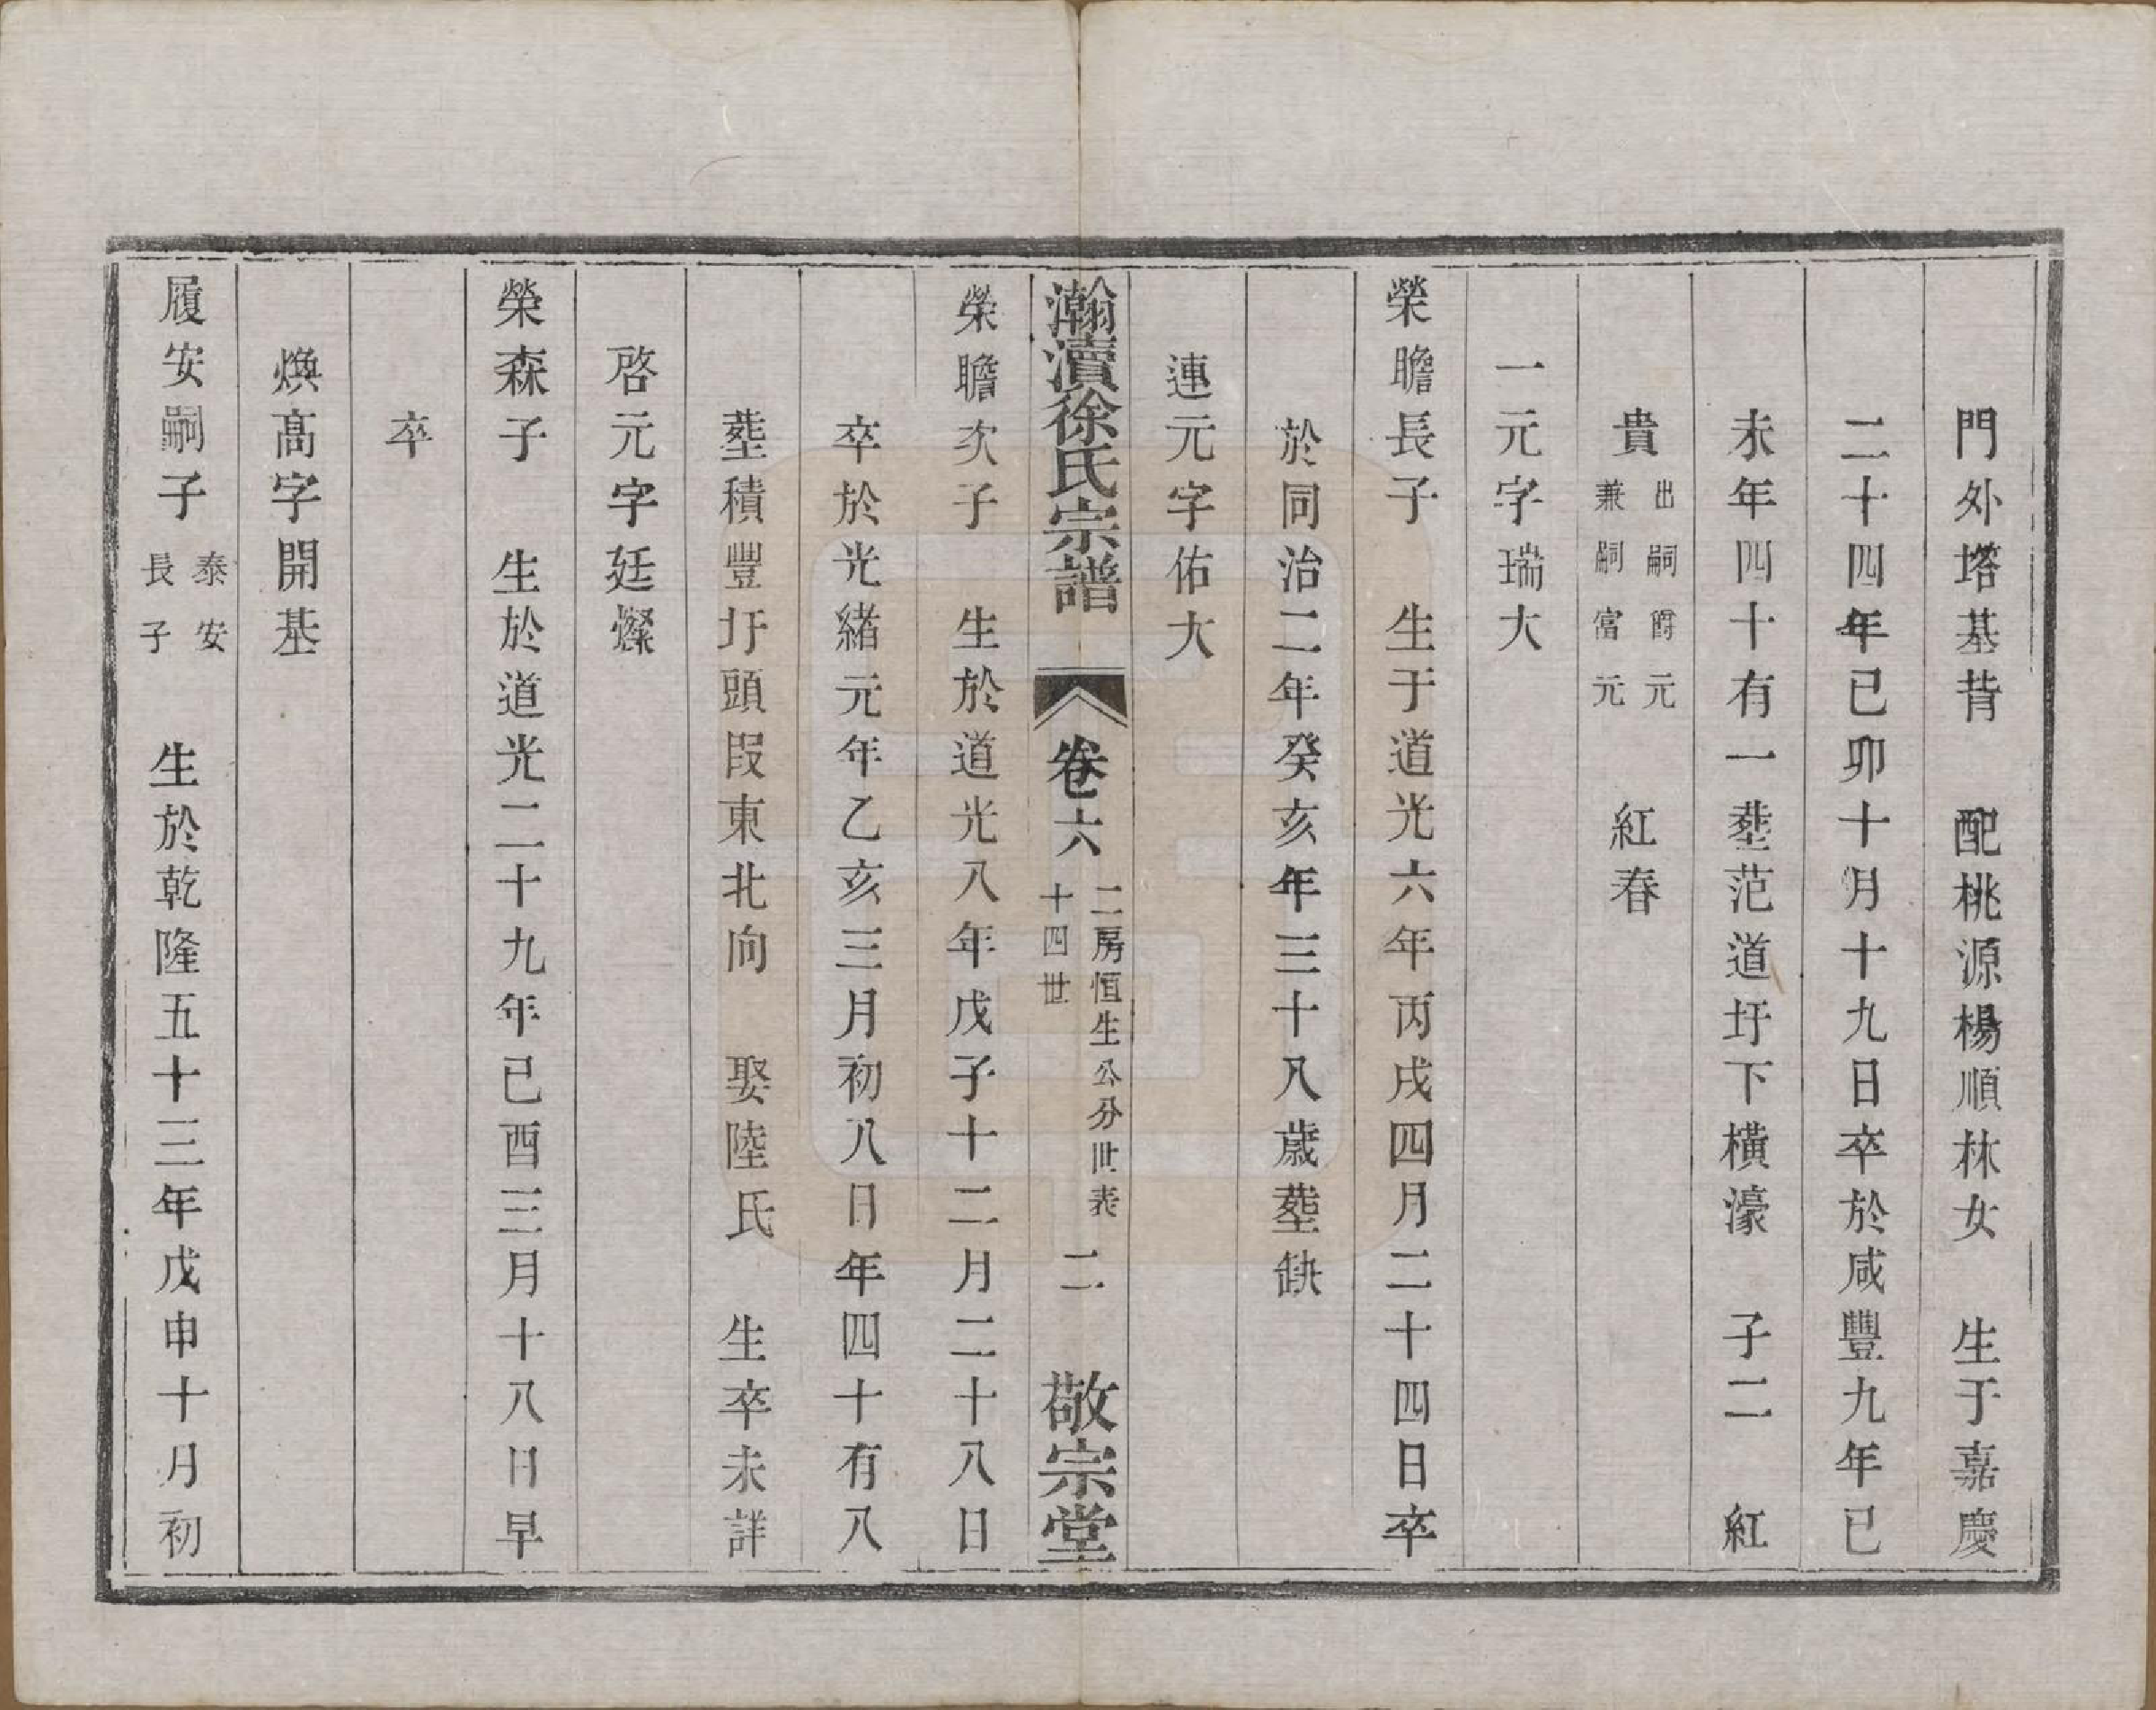 門外塔基背　配桃源楊順林女　生于嘉慶
二十四年已卯十月十九日卒於咸豐九年已
未年四十有一塟范道圩下橫濠　子二　紅
貴出嗣爵元兼嗣富元　紅春
一元字瑞大
榮瞻長子　生于道光六年丙戌四月二十四日卒
於同治二年癸亥年三十八歲塟缺
連元字佑大
瀚瀆徐氏宗譜　卷六　二房恒生公分世表十四世　二　敬宗堂
榮瞻次子　生於道光八年戊子十二月二十八日
卒於光緒元年乙亥三月初八日年四十有八
塟積豐圩頭叚東北向　娶陸氏　生卒未詳
啓元字廷燦
榮森子　生於道光二十九年已酉三月十八日早
卒
煥高字開基
履安嗣子泰安長子　生於乾隆五十三年戊申十月初